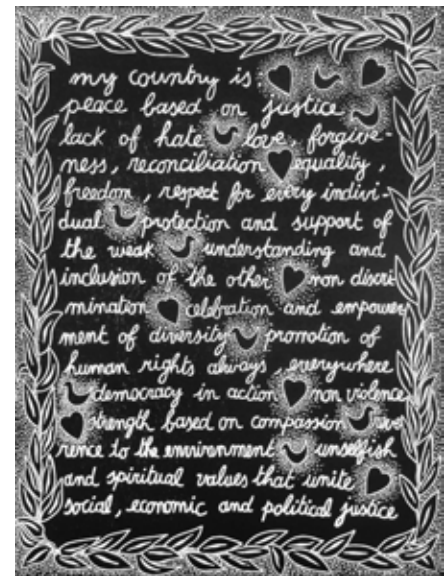 my country is
peace based on justice
lack of hate love, forgive-
ness, reconciliation equality,
freedom, respect for every indivi-
dual protection and support of
the weak understanding and
inclusion of the other non discri-
mination celebration and empower
ment of diversity promotion of
human rights always, everywhere
democracy in action non violence
strength based on compassion reve
rence to the environment unselfish
and spiritual values that unite
social, economic and political justice